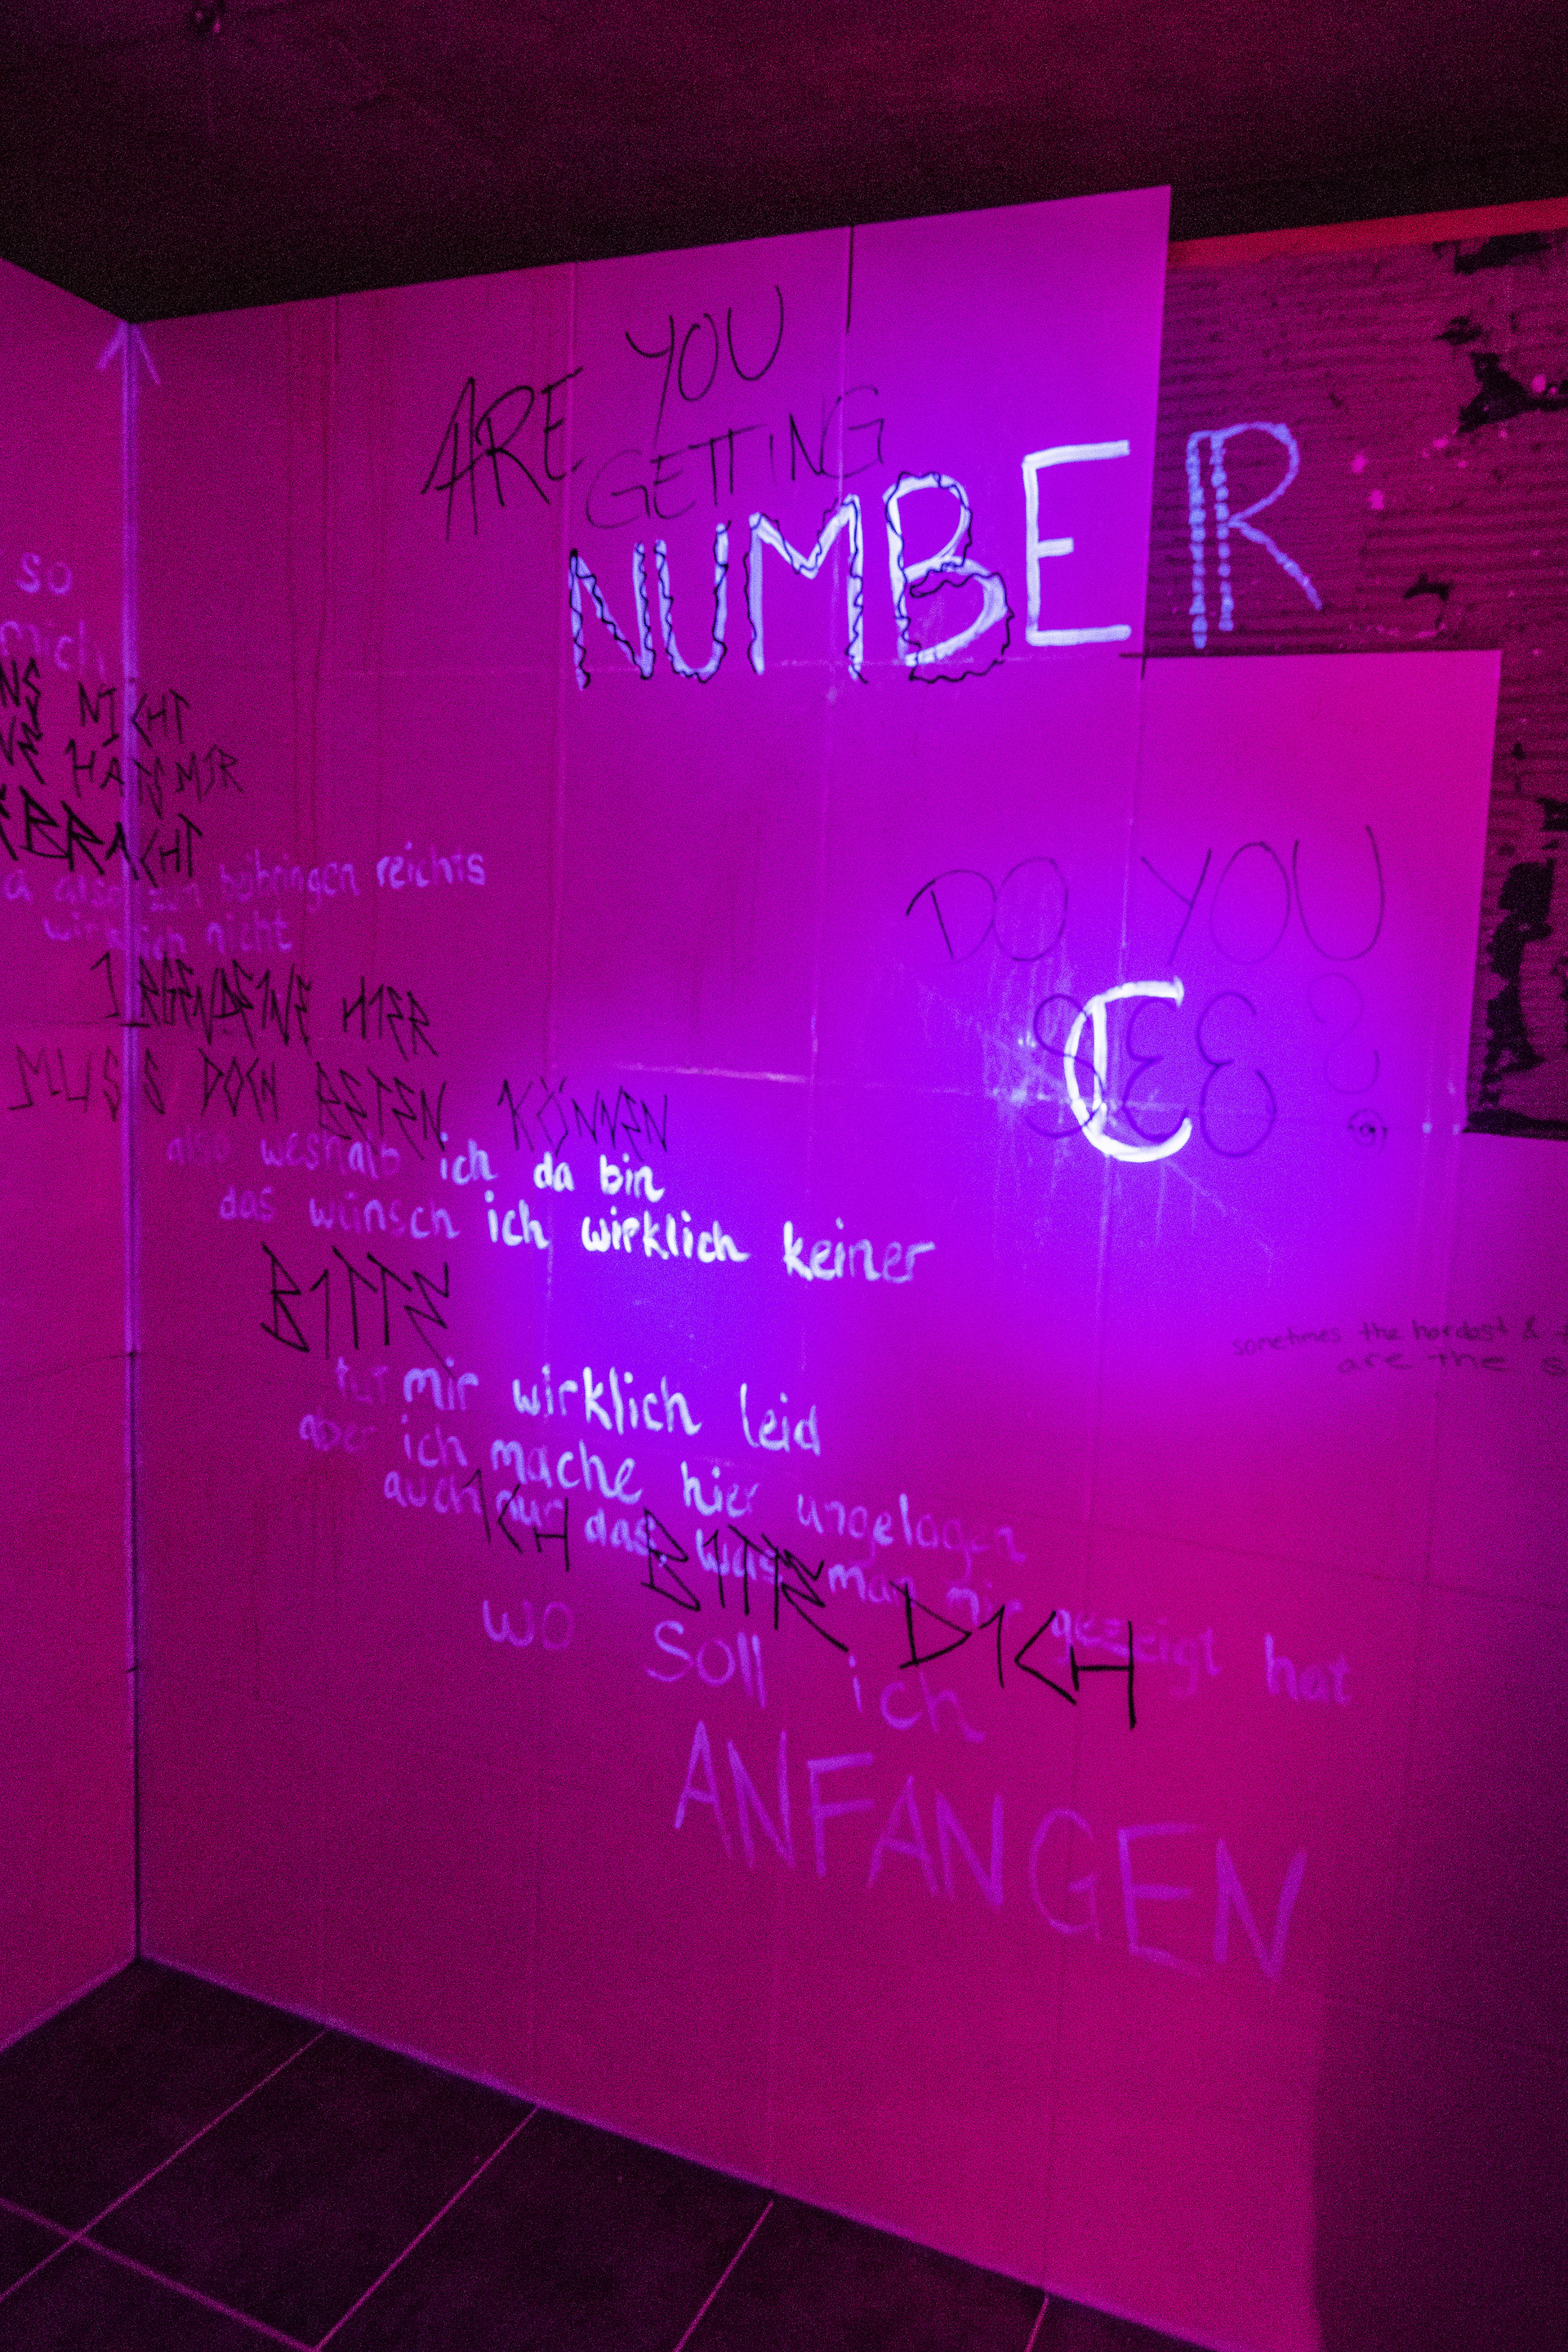 ARE YOU
GETTING
NUMBER
so
mich
NICHT
HATS MIR
DO YOU
SEE ?
C
beibringen reichts
wirklich nicht
IRGENDEINE HIER
MUSS DOCH BETEN KÖNNEN
also weshalb ich da bin
das wünsch ich wirklich keiner
BITTE
tut mir wirklich leid
aber ich mache hier ungelogen
auch nur das was man mir gezeigt hat
ICH BITTE DICH
wo soll ich
ANFANGEN
sometimes the hardest &
are the